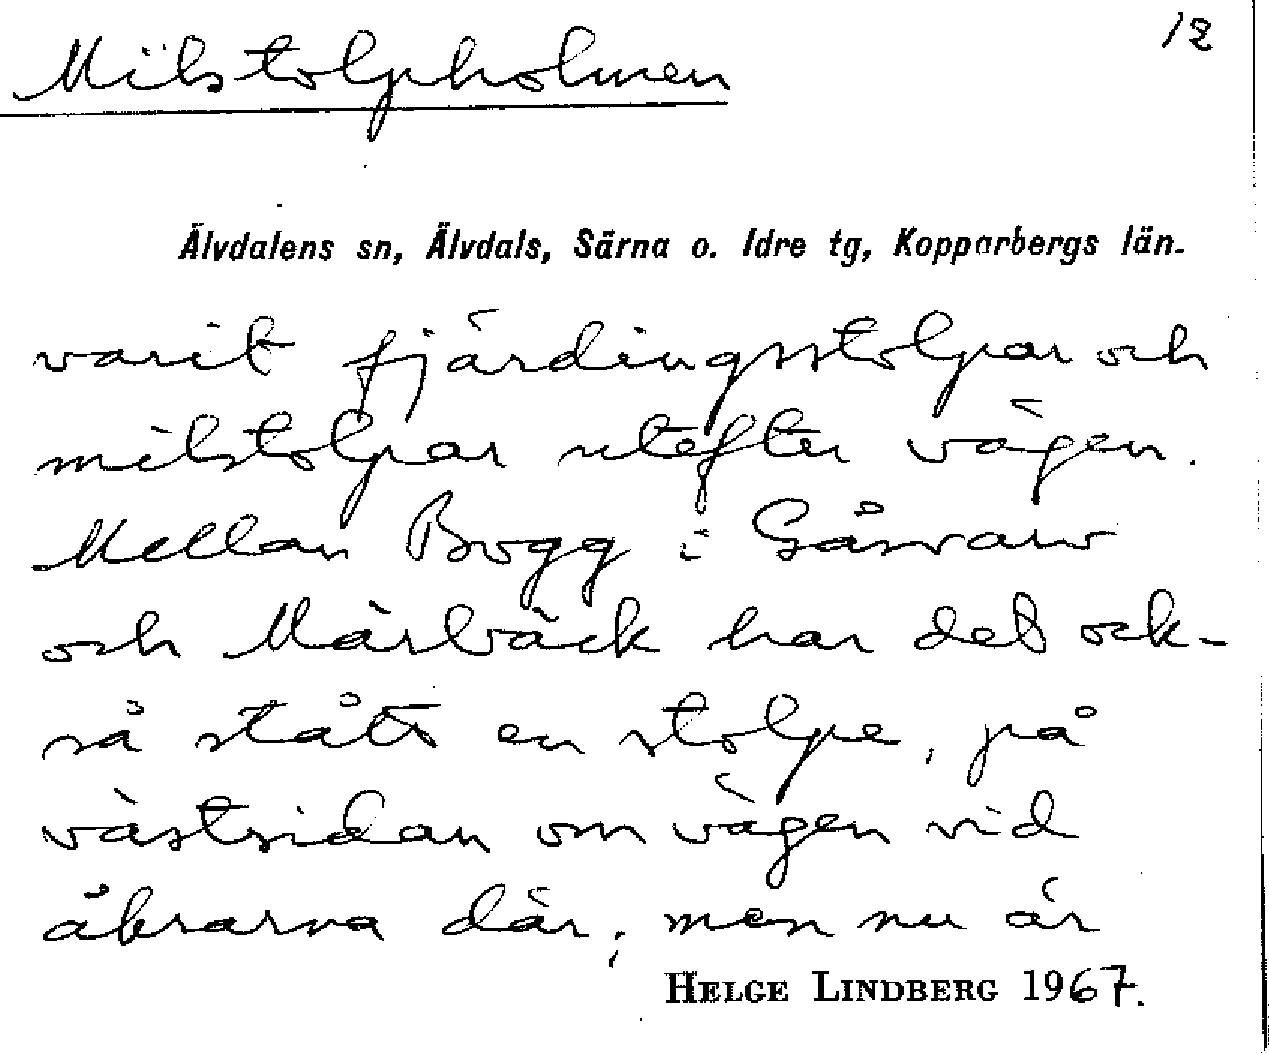 12
Milstolpholmen
Älvdalens sn, Älvdals, Särna o. Idre tg, Kopparbergs län.
varit fjärdingsstolpar och
milstolpar utefter vägen.
Mellan Brogg i Gåsvarv
och Mårbäck har det ock-
så stått en stolpe, på
västsidan om vägen vid
åkrarna där, men nu är
HELGE LINDBERG 1967.